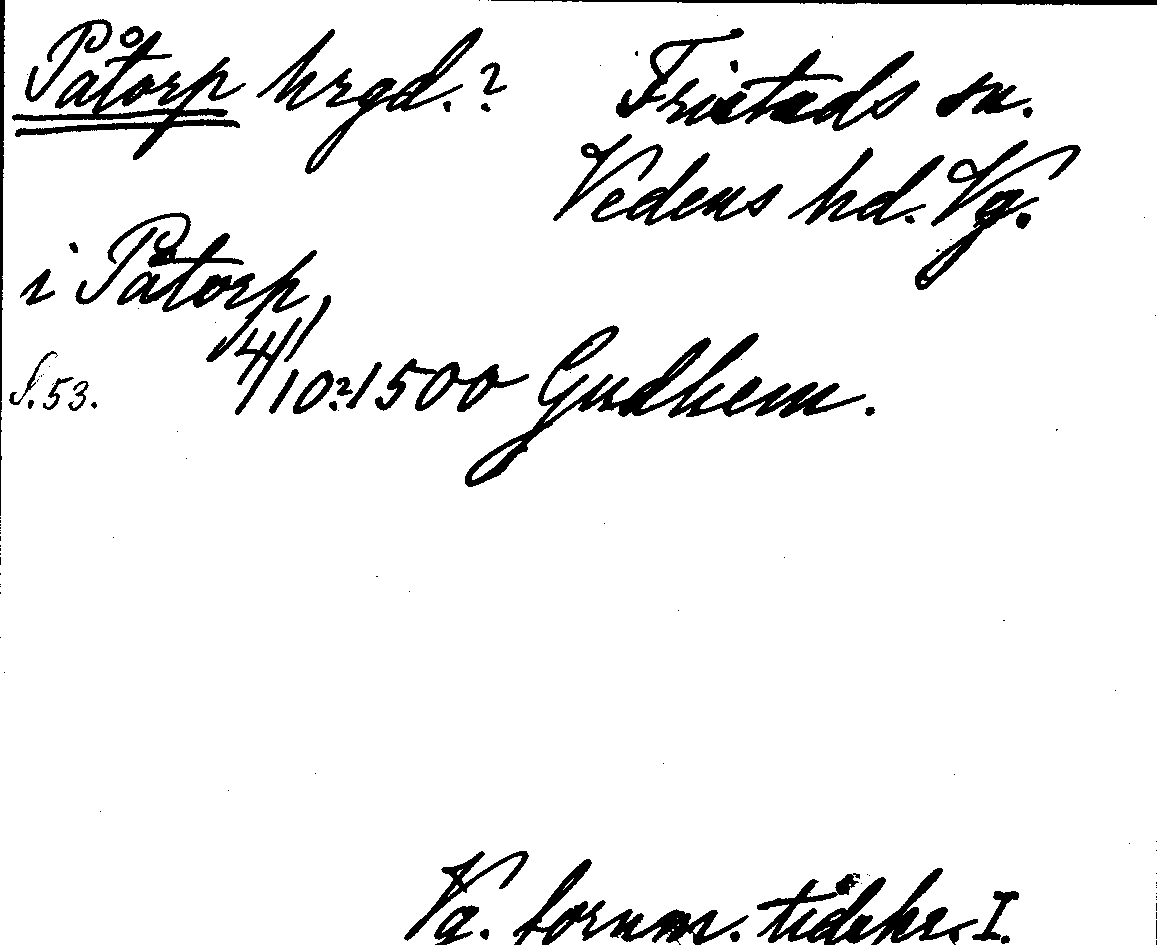 Påtorp hrgd.? Fristads sn.
Vedens hd. Vg.
i Påtorp
S.53. 4/10?1500 Gudhem.
Vg. fornm. tidskr. I.